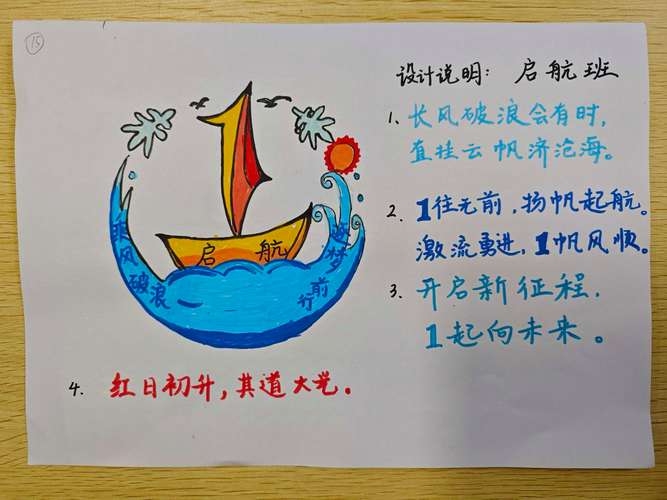 15
设计说明： 启航班
1. 长风破浪会有时，
直挂云帆济沧海。
2. 1往无前，扬帆起航。
激流勇进，1帆风顺。
3. 开启新征程，
1起向未来。
4. 红日初升，其道大光。
1
启 航
乘风破浪
逐梦前行